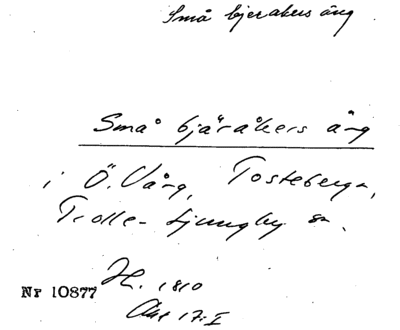 Små bjerakers äng
Små bjäråkers äng
i Ö. Vång, Tosteberga,
Trolle-Ljungby sn.
Nr 10877 H. 1810
Akt 17:I